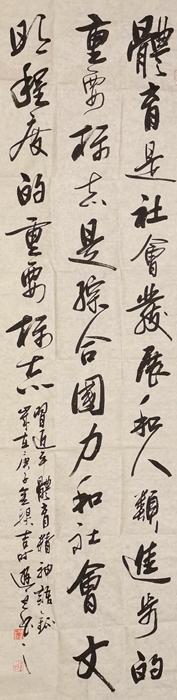 體育是社會發展和人類進步的
重要标志是綜合國力和社會文
明程度的重要标志
習近平體育精神語錄
歲在庚子金